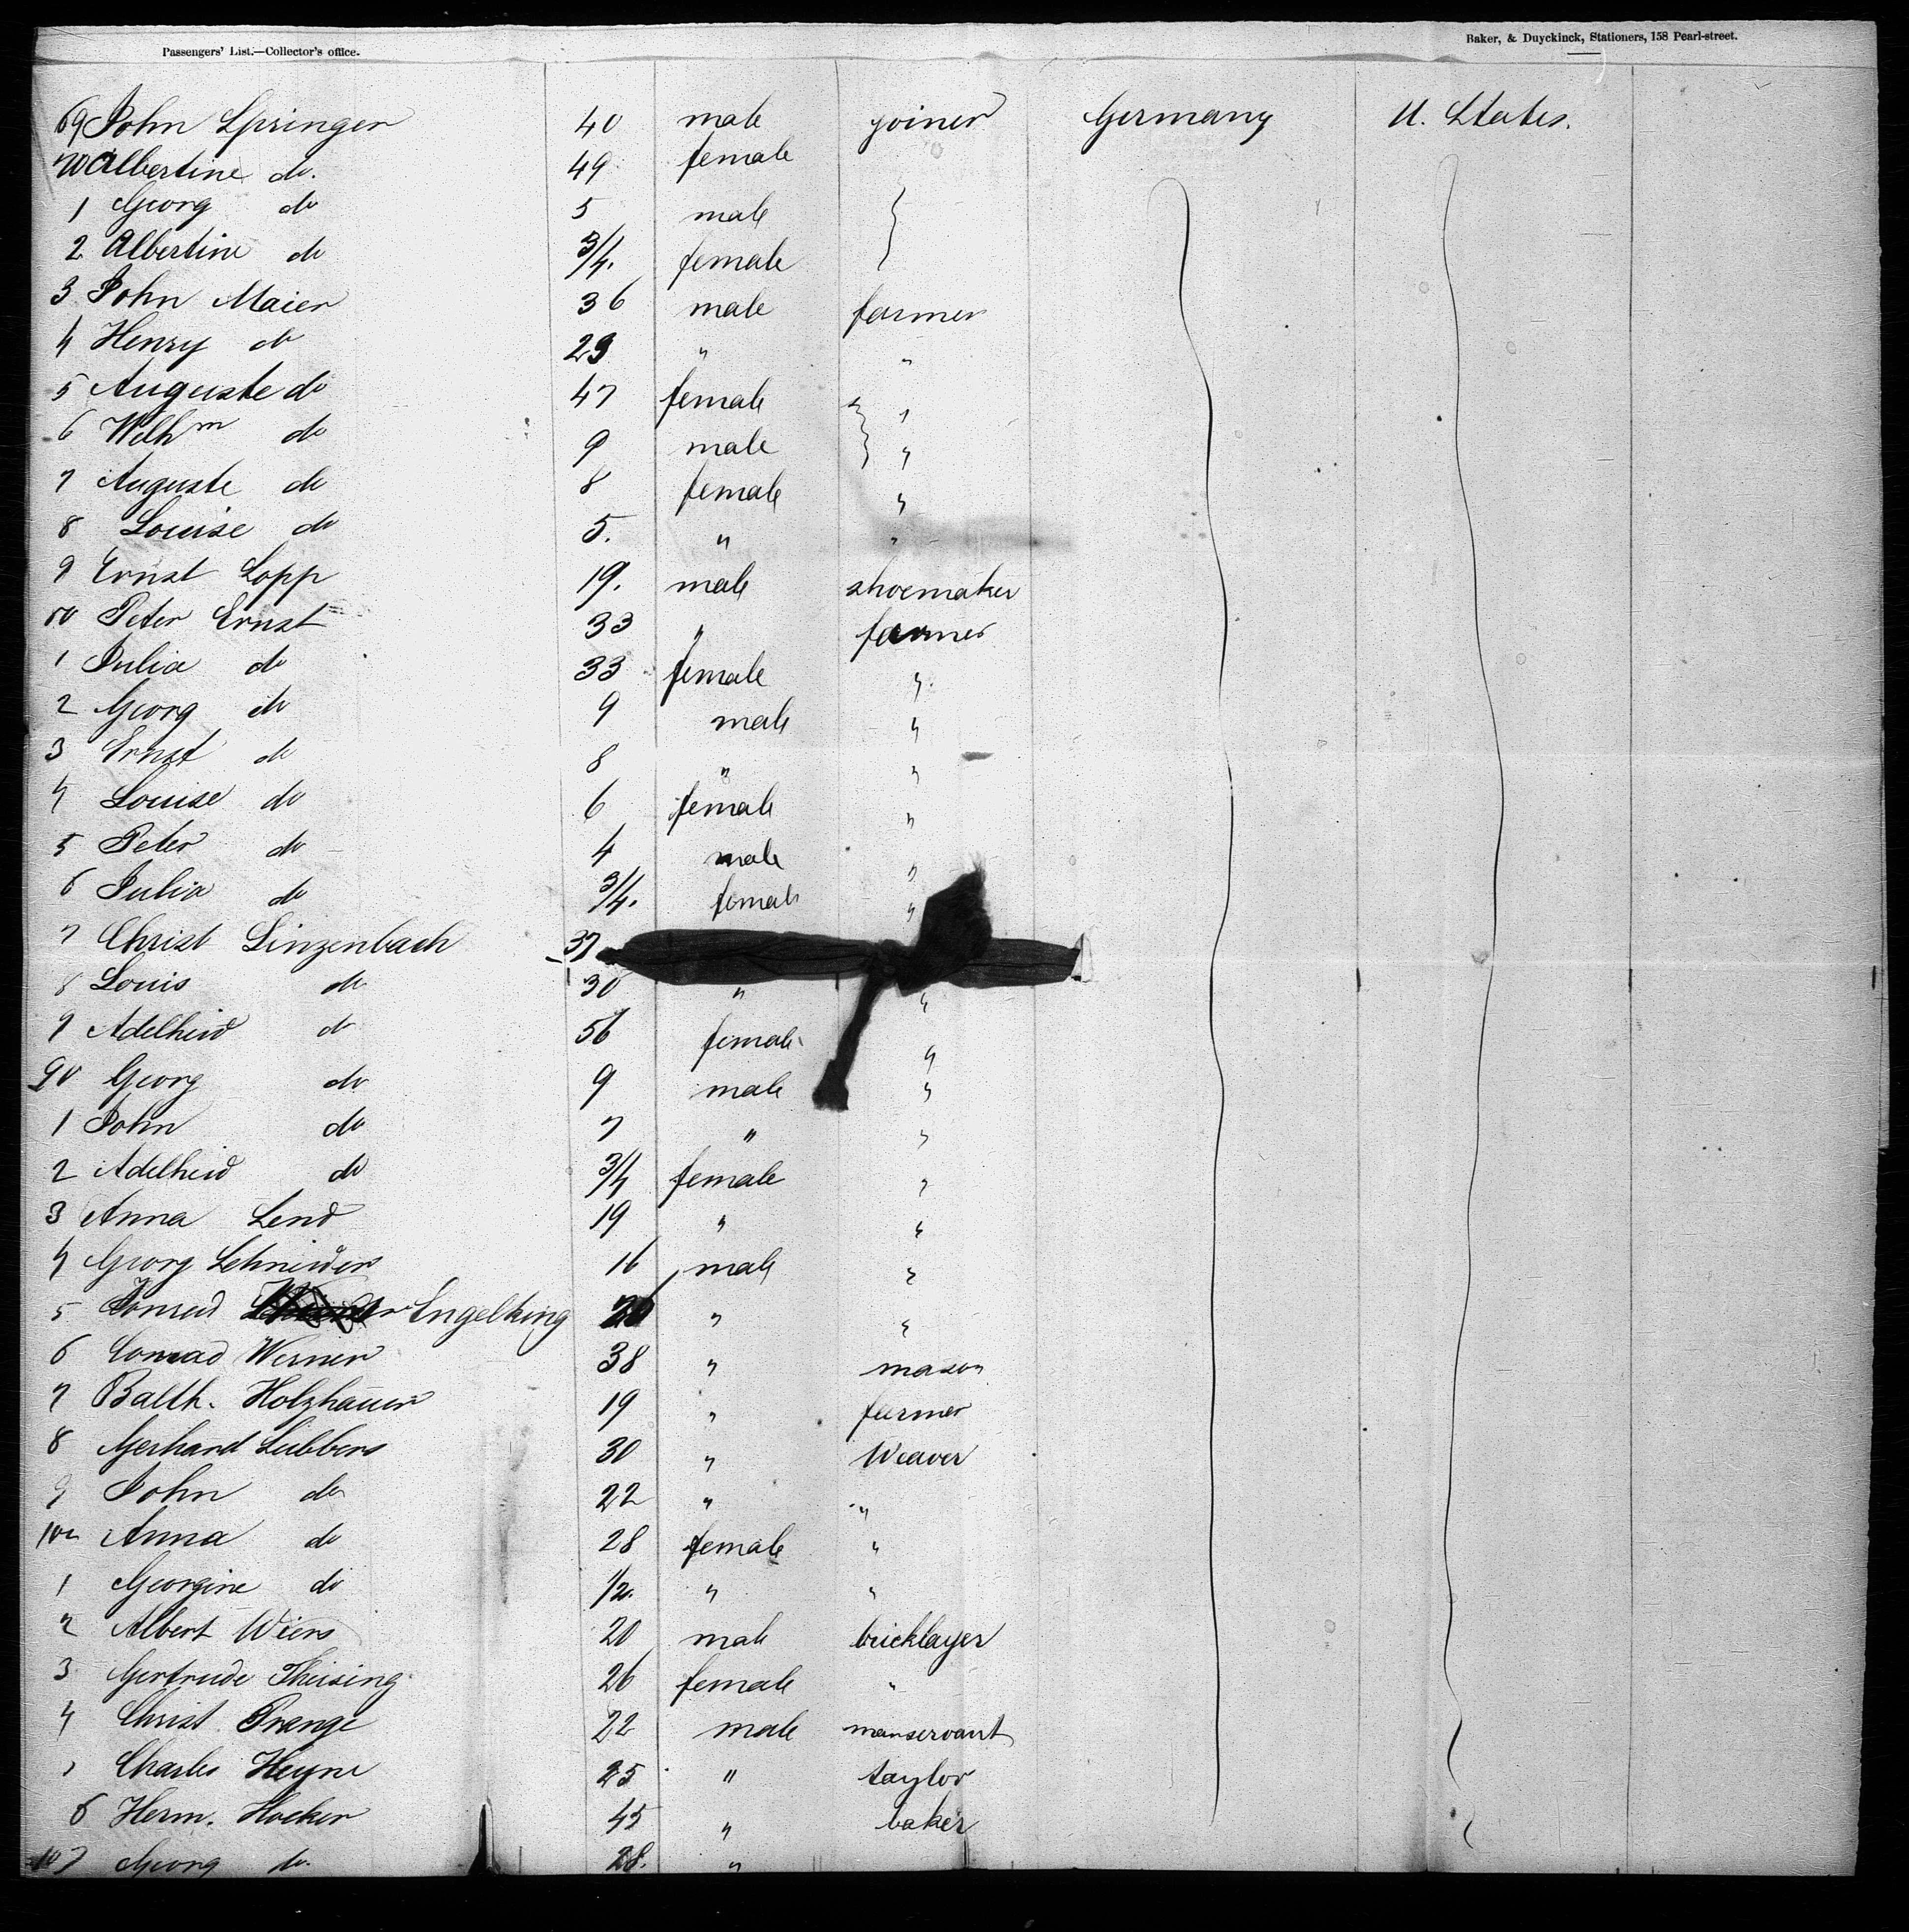 Passengers' List.—Collector's office. Baker, & Duyckinck, Stationers, 158 Pearl-street.
69 John Springer 40 male joiner Germany U. States.
70 Albertine do. 49 female
1 Georg do 5 male
2 Albertine do 3/4. female
3 John Maier 36 male farmer
4 Henry do 29 " "
5 Auguste do 47 female "
6 Wilhm do 9 male "
7 Auguste do 8 female "
8 Louise do 5. " "
9 Ernst Lopp 19. male shoemaker
80 Peter Ernst 33 " farmer
1 Julia do 33 female "
2 Georg do 9 male "
3 Ernst do 8 " "
4 Louise do 6 female "
5 Peter do 4 male "
6 Julia do 3/4. female "
7 Christ Linzenbach 37
8 Louis do 30 " "
9 Adelheid do 56 female "
90 Georg do 9 male "
1 John do 7 " "
2 Adelheid do 3/4 female "
3 Anna Lend 19 " "
4 Georg Schneider 16 male "
5 Conrad Engelking 20 " "
6 Conrad Werner 38 " mason
7 Balth. Holzhauer 19 " farmer
8 Gerhard Lübbers 30 " Weaver
9 John do 22 " "
100 Anna do 28 female "
1 Georgine do 1/2. " "
2 Albert Wiers 20 male bricklayer
3 Gertrude Theising 26 female "
4 Christ Prange 22 male manservant
5 Charles Heyne 25 " taylor
6 Herm. Hoeker 45 " baker
107 Georg do. 28. "